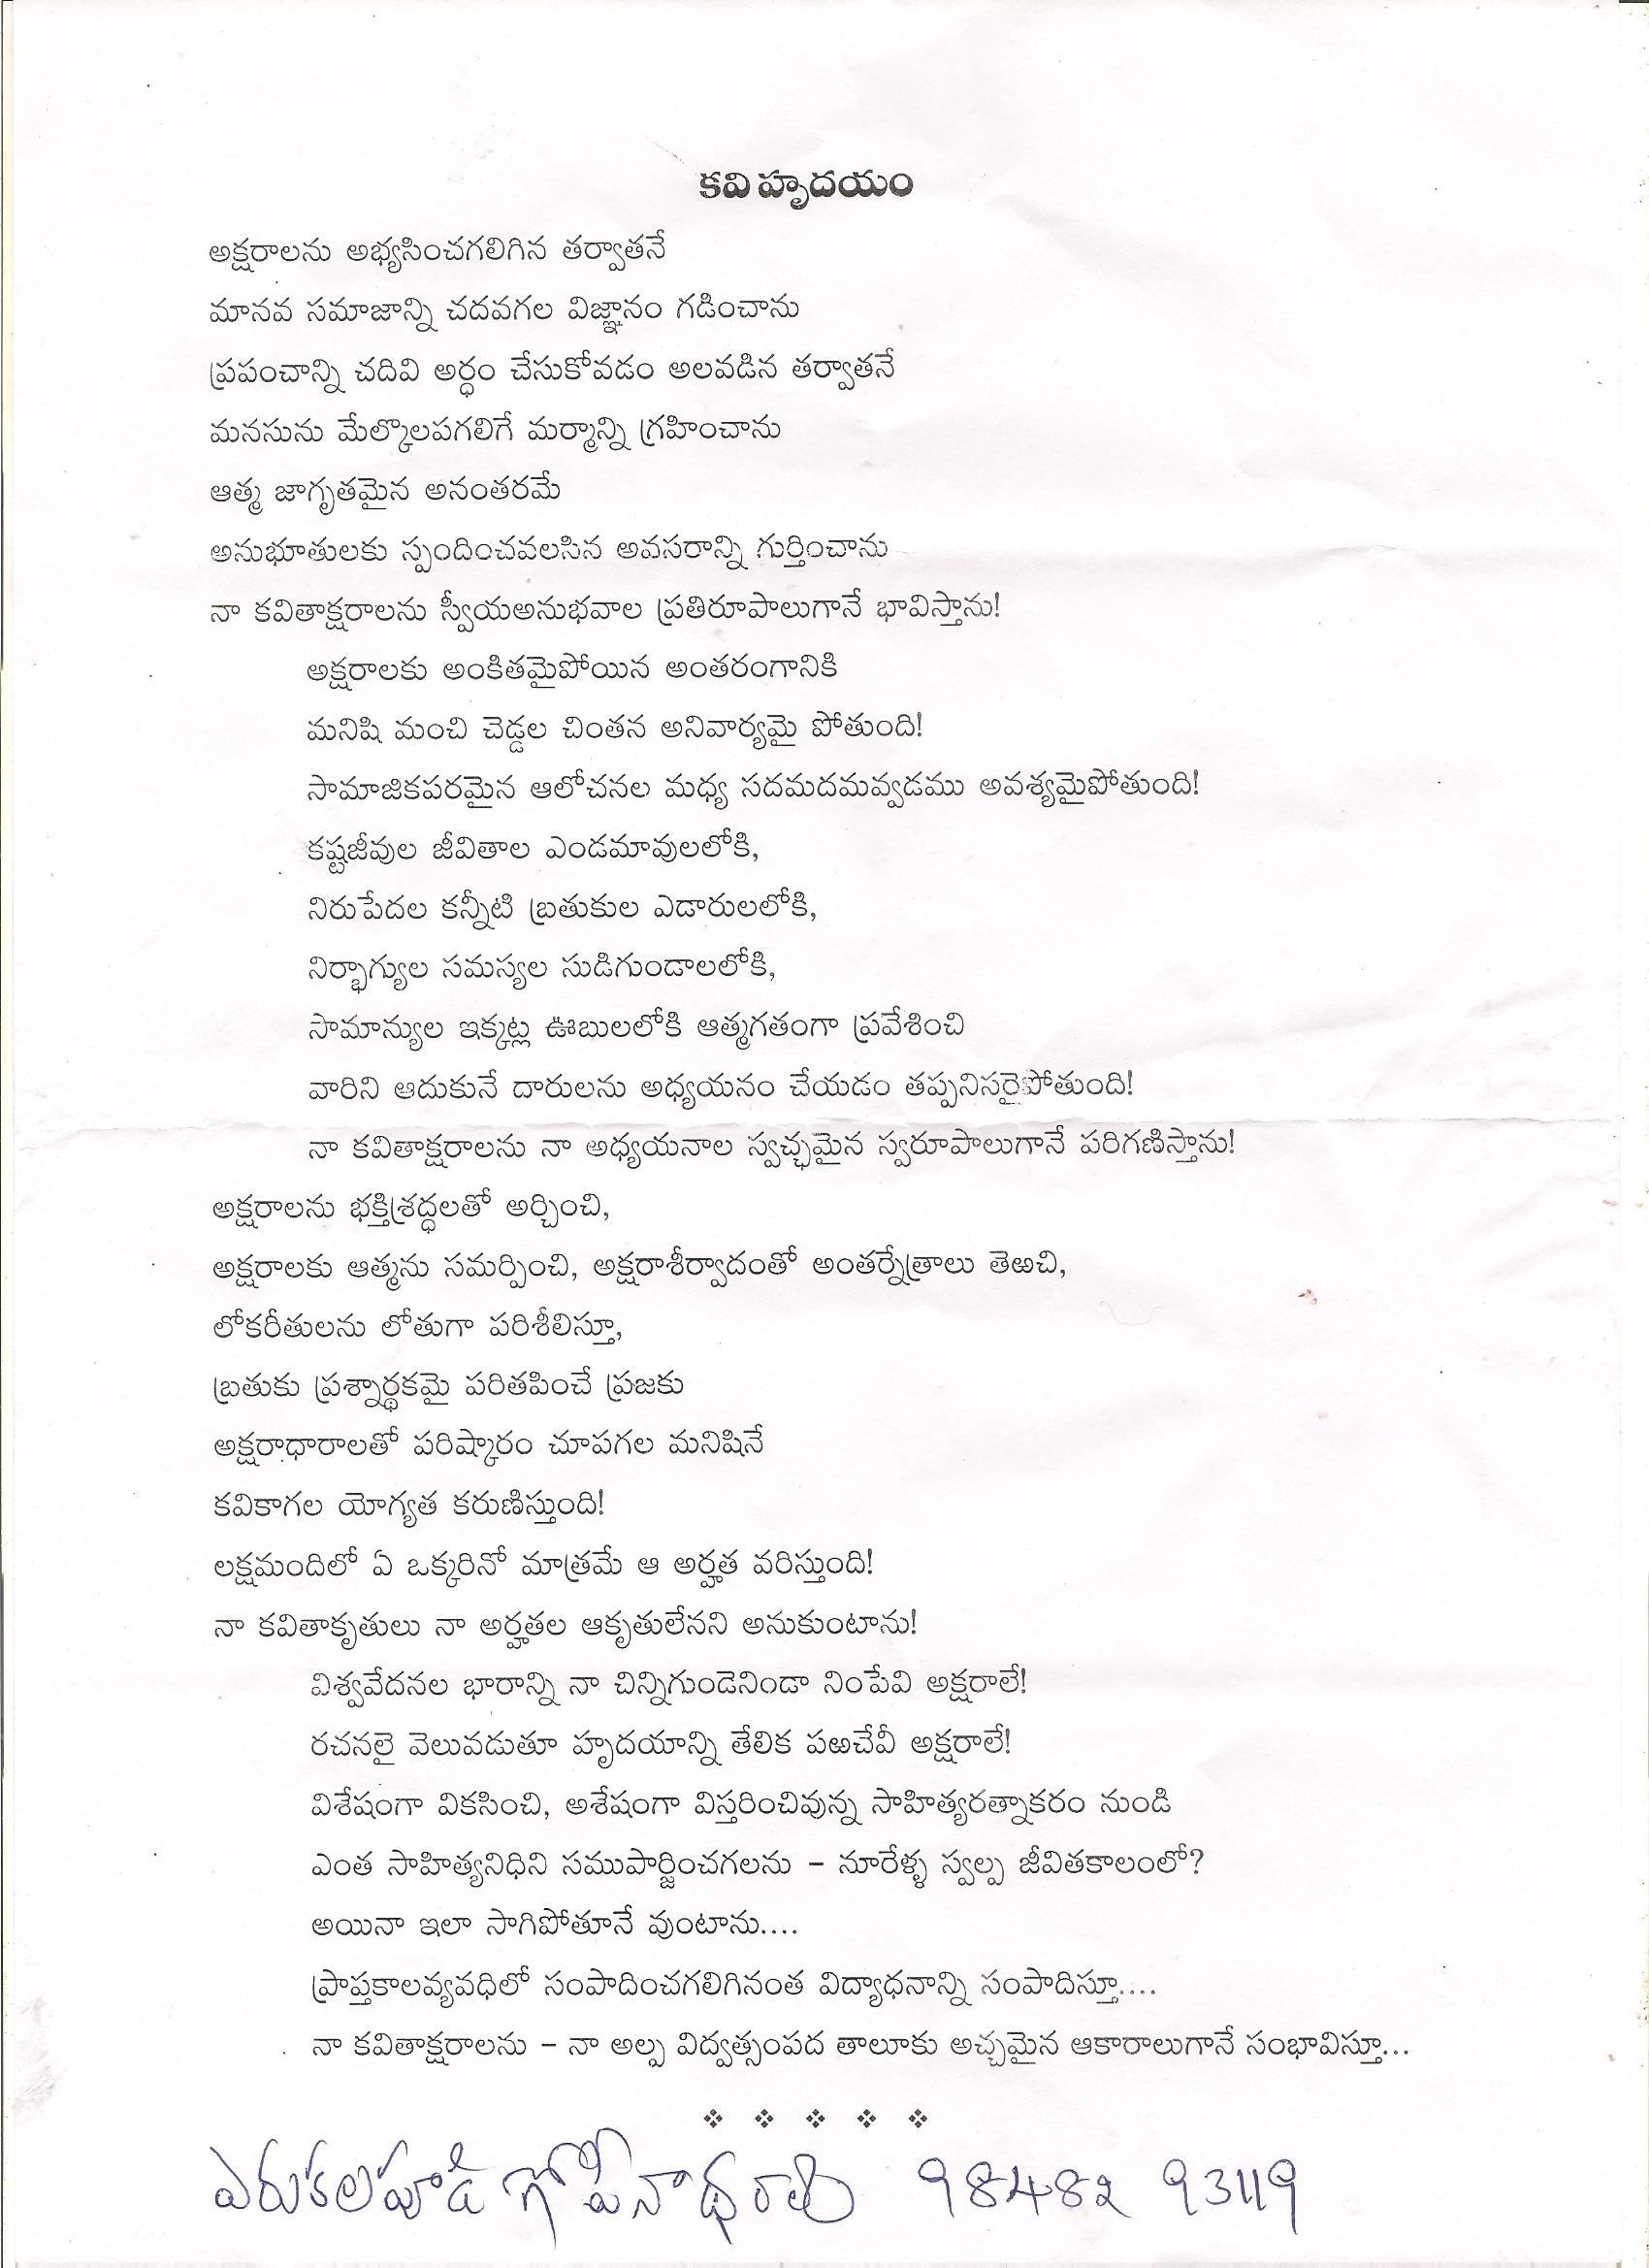 కవి హృదయం
అక్షరాలను అభ్యసించగలిగిన తర్వాతనే
మానవ సమాజాన్ని చదవగల విజ్ఞానం గడించాను
ప్రపంచాన్ని చదివి అర్ధం చేసుకోవడం అలవడిన తర్వాతనే
మనసును మేల్కొలపగలిగే మర్మాన్ని గ్రహించాను
ఆత్మ జాగృతమైన అనంతరమే
అనుభూతులకు స్పందించవలసిన అవసరాన్ని గుర్తించాను
నా కవితాక్షరాలను స్వీయఅనుభవాల ప్రతిరూపాలుగానే భావిస్తాను!
అక్షరాలకు అంకితమైపోయిన అంతరంగానికి
మనిషి మంచి చెడ్డల చింతన అనివార్యమై పోతుంది!
సామాజికపరమైన ఆలోచనల మధ్య సదమదమవ్వడము అవశ్యమైపోతుంది!
కష్టజీవుల జీవితాల ఎండమావులలోకి,
నిరుపేదల కన్నీటి బ్రతుకుల ఎడారులలోకి,
నిర్భాగ్యుల సమస్యల సుడిగుండాలలోకి,
సామాన్యుల ఇక్కట్ల ఊబులలోకి ఆత్మగతంగా ప్రవేశించి
వారిని ఆదుకునే దారులను అధ్యయనం చేయడం తప్పనిసరైపోతుంది!
నా కవితాక్షరాలను నా అధ్యయనాల స్వచ్ఛమైన స్వరూపాలుగానే పరిగణిస్తాను!
అక్షరాలను భక్తిశ్రద్ధలతో అర్చించి,
అక్షరాలకు ఆత్మను సమర్పించి, అక్షరాశీర్వాదంతో అంతర్నేత్రాలు తెఱచి,
లోకరీతులను లోతుగా పరిశీలిస్తూ,
బ్రతుకు ప్రశ్నార్థకమై పరితపించే ప్రజకు
అక్షరాధారాలతో పరిష్కారం చూపగల మనిషినే
కవికాగల యోగ్యత కరుణిస్తుంది!
లక్షమందిలో ఏ ఒక్కరినో మాత్రమే ఆ అర్హత వరిస్తుంది!
నా కవితాకృతులు నా అర్హతల ఆకృతులేనని అనుకుంటాను!
విశ్వవేదనల భారాన్ని నా చిన్నిగుండెనిండా నింపేవి అక్షరాలే!
రచనలై వెలువడుతూ హృదయాన్ని తేలిక పఱచేవీ అక్షరాలే!
విశేషంగా వికసించి, అశేషంగా విస్తరించివున్న సాహిత్యరత్నాకరం నుండి
ఎంత సాహిత్యనిధిని సముపార్జించగలను – నూరేళ్ళ స్వల్ప జీవితకాలంలో?
అయినా ఇలా సాగిపోతూనే వుంటాను....
ప్రాప్తకాలవ్యవధిలో సంపాదించగలిగినంత విద్యాధనాన్ని సంపాదిస్తూ....
నా కవితాక్షరాలను – నా అల్ప విద్వత్సంపద తాలూకు అచ్చమైన ఆకారాలుగానే సంభావిస్తూ...
ఎరుకలపూడి గోపీనాథరావు 98482 93119